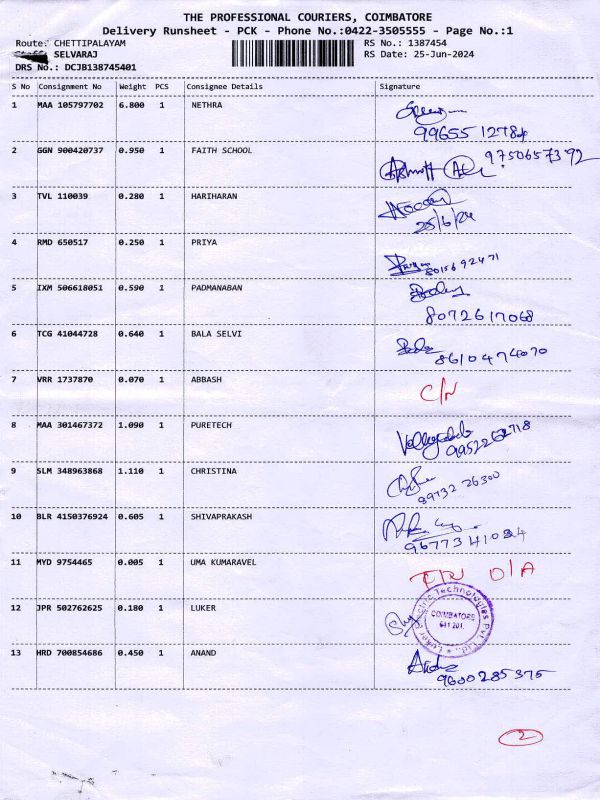 THE PROFESSIONAL COURIERS, COIMBATORE
Delivery Runsheet - PCK - Phone No.:0422-3505555 - Page No.:1
Route: CHETTIPALAYAM RS No.: 1387454
SELVARAJ RS Date: 25-Jun-2024
DRS No.: DCJB138745401
S No Consignment No Weight PCS Consignee Details Signature
1 MAA 105797702 6.800 1 NETHRA
2 GGN 900420737 0.950 1 FAITH SCHOOL 9750657392
3 TVL 110039 0.280 1 HARIHARAN
25/6/24
4 RMD 650517 0.250 1 PRIYA
8015692471
5 IXM 506618051 0.590 1 PADMANABAN
8072617068
6 TCG 41044728 0.640 1 BALA SELVI
8610474070
7 VRR 1737870 0.070 1 ABBASH C/N
8 MAA 301467372 1.090 1 PURETECH
9 SLM 348963868 1.110 1 CHRISTINA
8973226300
10 BLR 4150376924 0.605 1 SHIVAPRAKASH
11 MYD 9754465 0.005 1 UMA KUMARAVEL D/A
12 JPR 502762625 0.180 1 LUKER
COIMBATORE
641 201.
13 HRD 700854686 0.450 1 ANAND
9600285375
2